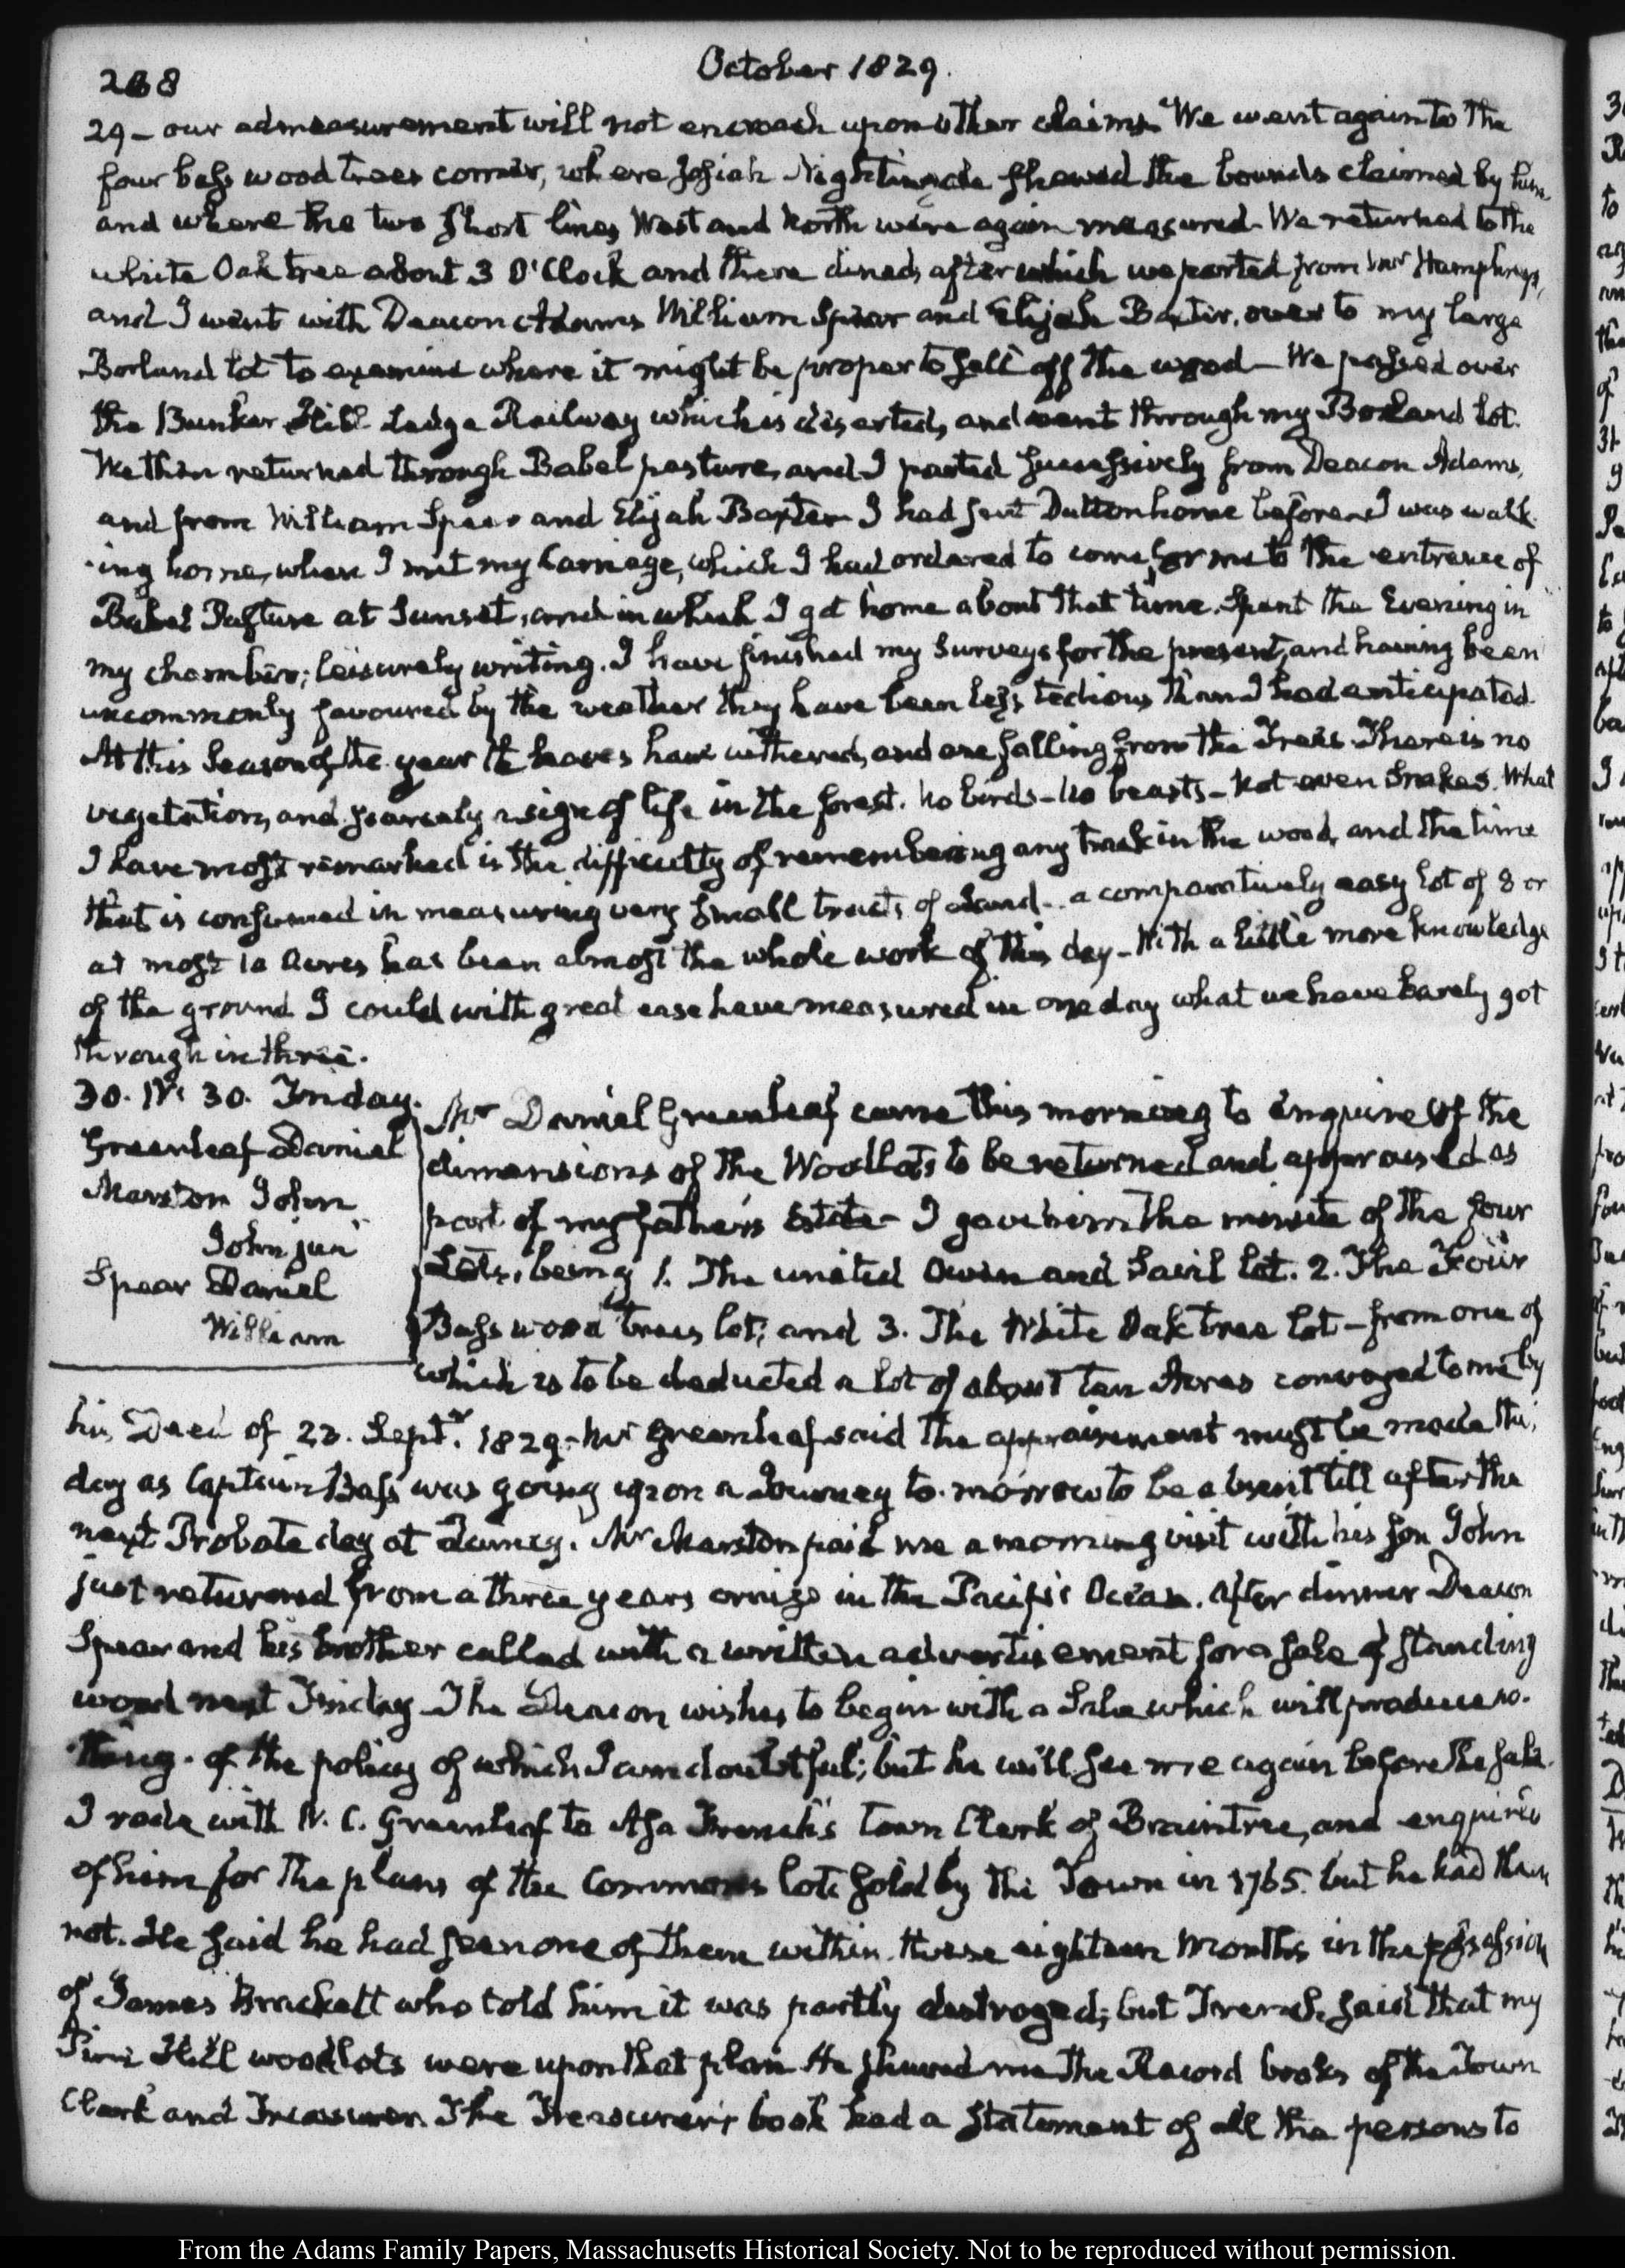 268
October 1829.
29 – our admeasurement will not encroach upon other claims. We went again to the
four bass wood trees corner, where Josiah Nightingale shewed the bounds claimed by him,
and where the two short lines West and North were again measured. We returned to the
white Oak tree about 3 O'Clock and there dined, after which we parted from Mr Humphreys,
and I went with Deacon Adams William Spear and Elijah Baxter, over to my large
Borland lot to examine where it might be proper to sell off the wood – We passed over
the Bunker Hill Ledge Railway which is deserted, and went through my Borland lot.
We then returned through Babel pasture, and I parted successively from Deacon Adams,
and from William Spear and Elijah Baxter I had sent Dutton home before. I was walk-
ing home, when I met my Carriage, which I had ordered to come for me to the entrance of
Babel Pasture at Sunset, and in which I got home about that time. Spent the Evening in
my chamber; leisurely writing. I have finished my Surveys for the present, and having been
uncommonly favoured by the weather they have been less tedious than I had anticipated.
At this Season of the year the leaves have withered, and are falling from the Trees There is no
vegetation, and scarcely a sign of life in the forest. No birds – No beasts – Not even Snakes. What
I have most remarked is the difficulty of remembering any track in the wood, and the time
that is consumed in measuring very small tracts of Land – a comparatively easy lot of 8 or
at most 10 Acres has been almost the whole work of this day – With a little more knowledge
of the ground I could with great ease have measured in one day what we have barely got
through in three.
30. IV. 30. Friday.
Greenleaf Daniel
Marston John
John jun
Spear Daniel
William
Mr Daniel Greenleaf came this morning to enquire of the
dimensions of the Woodlots to be returned and appraised as
part of my father's Estate – I gave him the minute of the four
Lots, being 1. The united Owen and Savil lot. 2. The Four
Bass wood trees lot; and 3. The White Oak tree lot – from one of
which is to be deducted a lot of about ten Acres conveyed to me by
his Deed of 23. Septr. 1829. – Mr Greenleaf said the appraisement must be made this
day as Captain Bass was going upon a Journey to-morrow to be absent till after the
next Probate day at Quincy. Mr Marston paid me a morning visit with his Son John
just returned from a three years cruize in the Pacific Ocean. After dinner Deacon
Spear and his brother called with a written advertisement for a sale of standing
wood next Friday The Deacon wishes to begin with a Sale which will produce no-
thing. of the policy of which I am doubtful; but he will see me again before the sale.
I rode with W. C. Greenleaf to Asa French's Town Clerk of Braintree, and enquired
of him for the plans of the Commons lots sold by the Town in 1765. but he had them
not. He said he had seen one of them within these eighteen Months in the possession
of James Brackett who told him it was partly destroyed; but French said that my
Pine Hill woodlots were upon that plan He shewed me the Record books of the Town
Clerk and Treasurer. The Treasurer's book had a statement of all the persons to
From the Adams Family Papers, Massachusetts Historical Society. Not to be reproduced without permission.